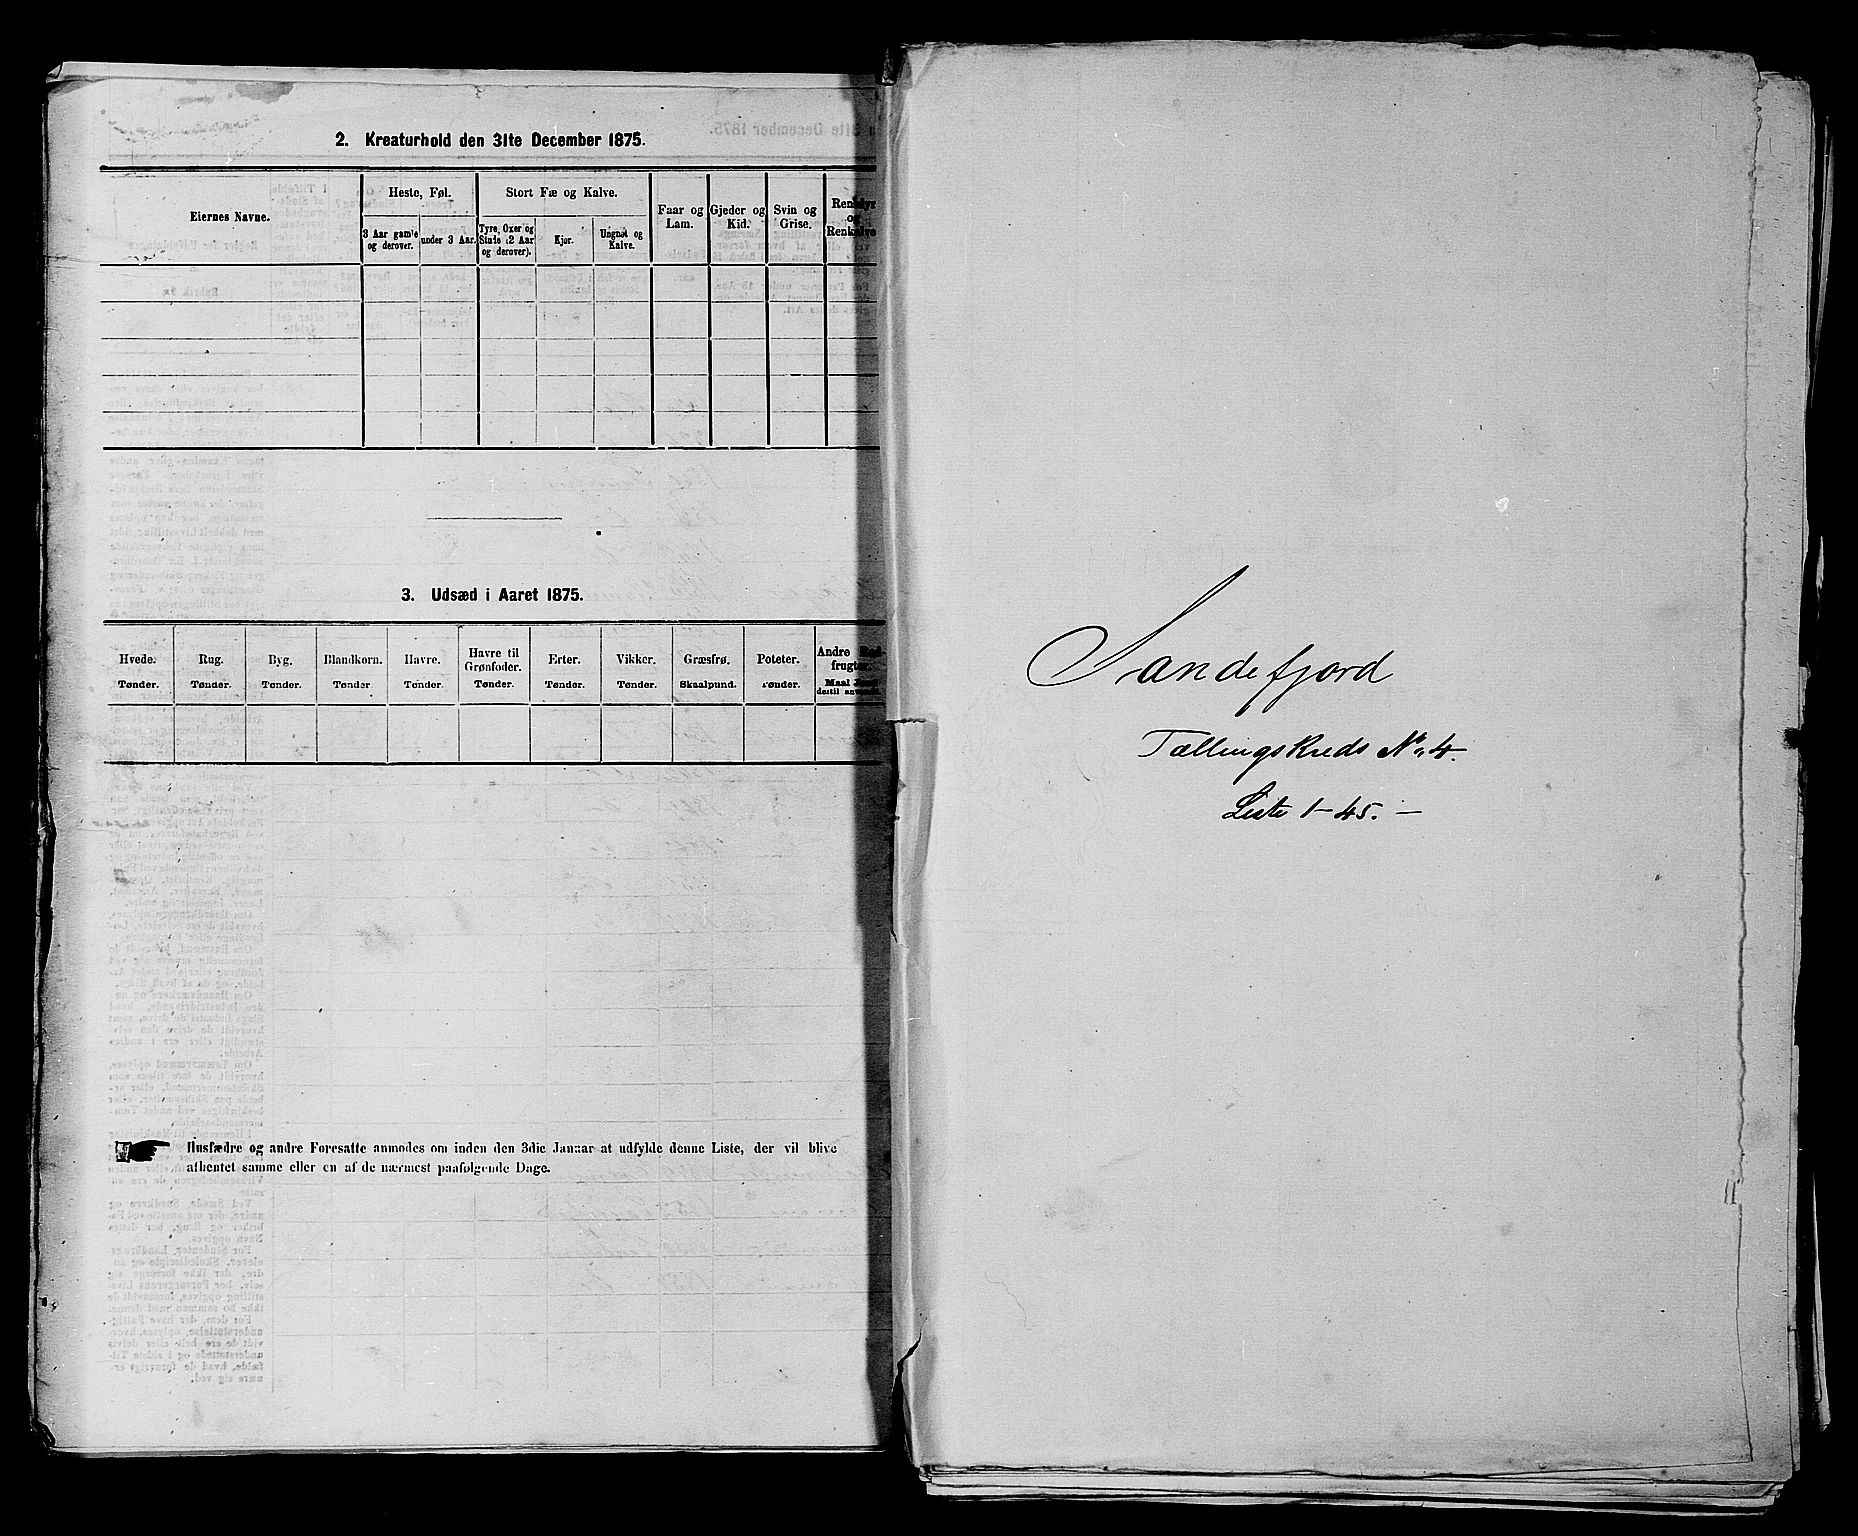 2. Kreaturhold den 31te December 1875.
Eiernes Navne.
Heste, Føl.
Stort Fæ og Kalve.
Faar og
Lam.
Gjeder og
Kid.
Svin og
Grise.
Rensdyr
og
Renkalve
3 Aar gamle
og derover.
under 3 Aar.
Tyre, Oxer og
Stude (2 Aar
og derover).
Kjør.
Ungnøt og
Kalve.
3. Udsæd i Aaret 1875.
Hvede.
Tønder.
Rug.
Tønder.
Byg.
Tønder.
Blandkorn.
Tønder
Havre.
Tønder.
Havre til
Grønfoder.
Tønder.
Erter.
Tønder.
Vikker.
Tønder.
Græsfrø.
Skaalpund.
Poteter.
Tønder.
Andre Rod-
frugter.
Maal Jord
dertil anvendt.
Husfædre og andre Foresatte anmodes om inden den 3die Januar at udfylde denne Liste, der vil blive
afhentet samme eller en af de nærmest paafølgende Dage.
Sandefjord
Tællingskreds No. 4.
Liste 1-45. -